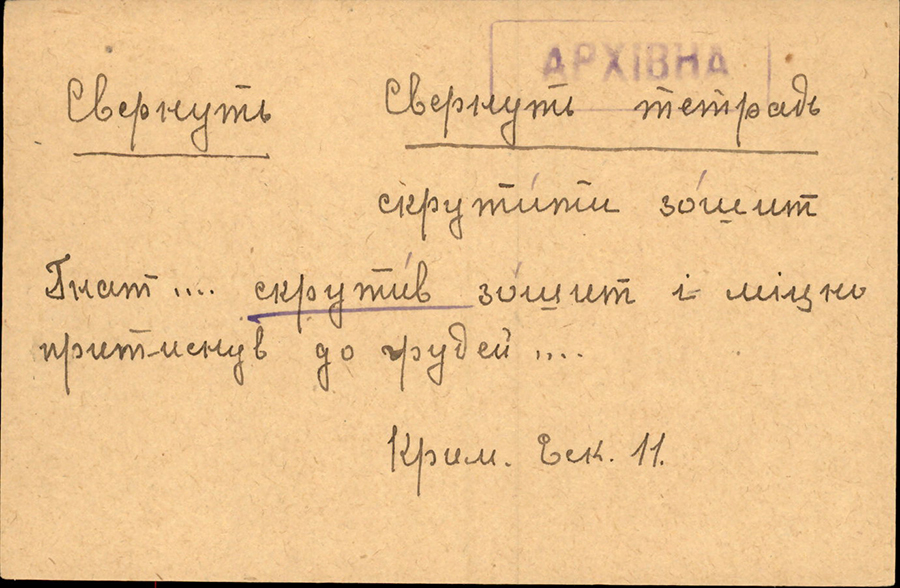 АРХІВНА
Свернуть Свернуть тетрадь
скрути́ти зо́шит
Гнат .... скрути́в зо́шит і міцно
притиснув до грудей ....
Крим. Еск. 11.